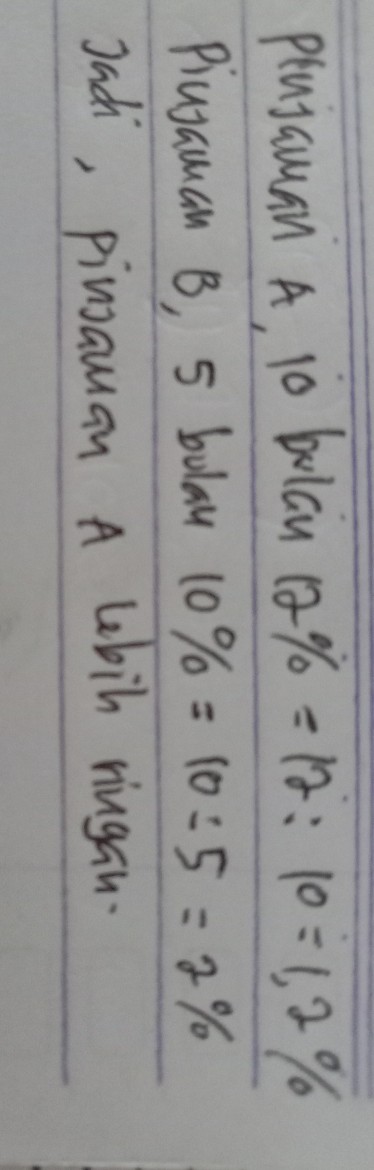 Pinjaman A, 10 bulan 12% = 12 : 10 = 1,2%
Pinjaman B, 5 bulan 10% = 10 : 5 = 2%
Jadi, Pinjaman A lebih ringan.